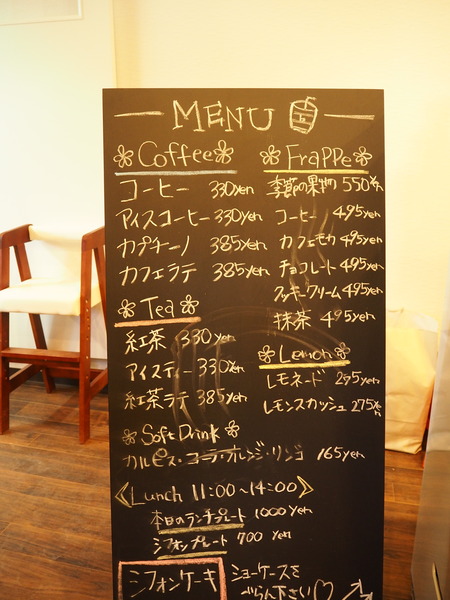 MENU
Coffee
コーヒー 330yen
アイスコーヒー 330yen
カプチーノ 385yen
カフェラテ 385yen
Tea
紅茶 330yen
アイスティー 330yen
紅茶ラテ 385yen
Soft Drink
カルピス・コーラ・オレンジ・リンゴ 165yen
Frappe
季節の果物 550yen
コーヒー 495yen
カフェモカ 495yen
チョコレート 495yen
クッキークリーム 495yen
抹茶 495yen
Lemon
レモネード 275yen
レモンスカッシュ 275yen
《Lunch 11:00~14:00》
本日のランチプレート 1000yen
シフォンプレート 700yen
シフォンケーキ
ショーケースを
らん下さい♡